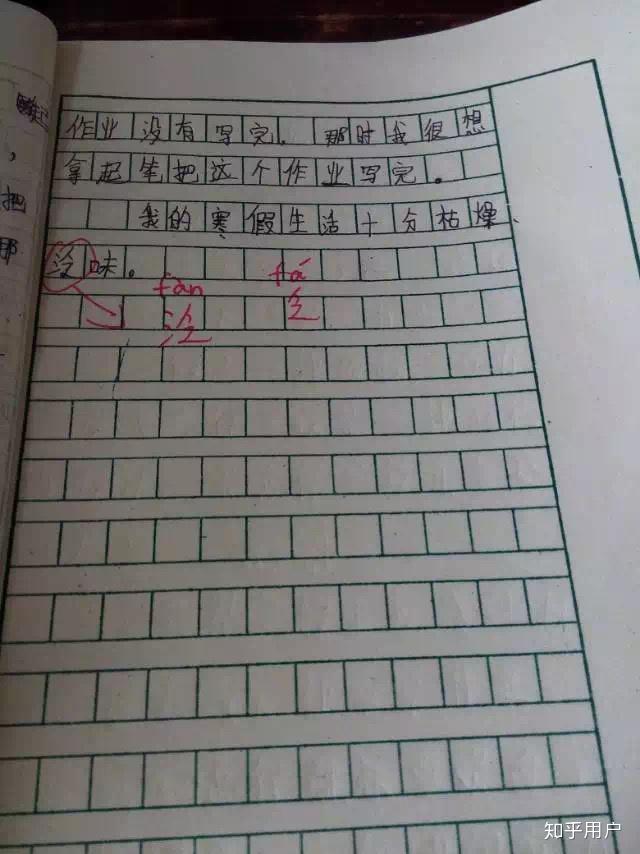 作业没有写完．那时我很想
拿起笔把这个作业写完。
我的寒假生活十分枯燥、
泛味。
fàn
fá
泛
乏
，
把
那
知乎用户